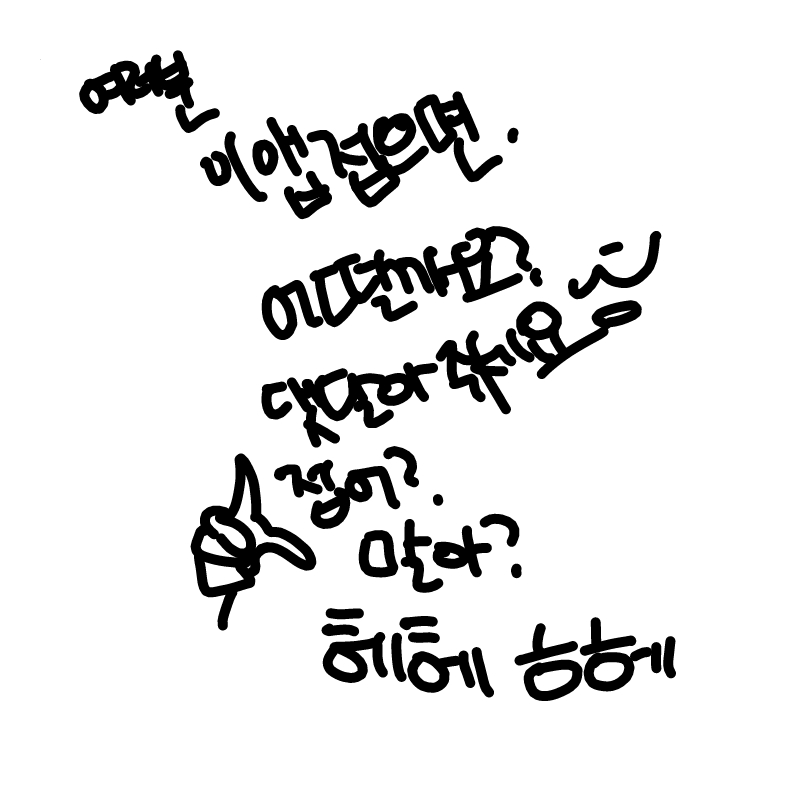 여러분
이앱접으면.
어떨까요?
댓달아주세요
접어?.
말아?
헤헤 ㅎㅎ에